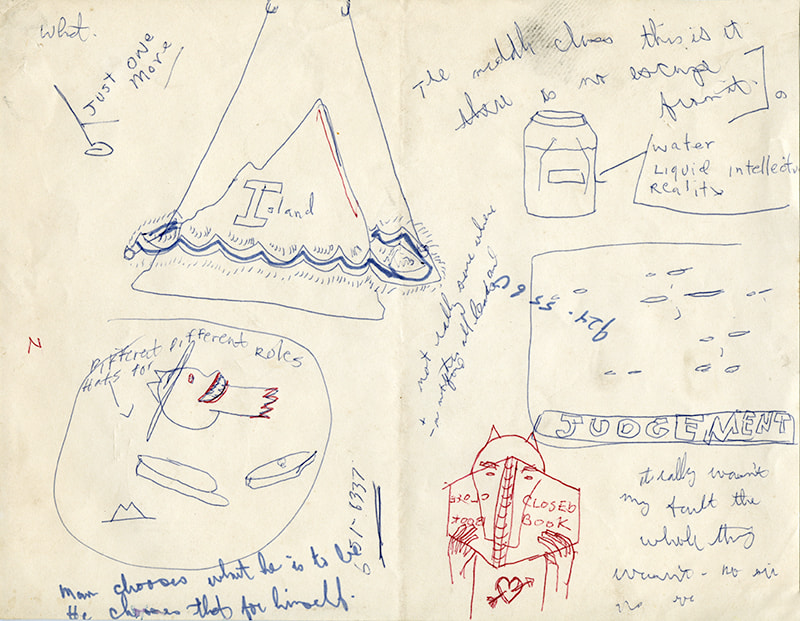 what.
JUST ONE
MORE
Island
N
Different Different Roles
Hats for
651-6337
man chooses what he is to be
He chooses that for himself.
The middle class this is it
there is no escape
from it.
water
Liquid intellectu
Reality
not really some where
all
924-55 6
JUDGEMENT
CLOSED
BOOK
CLOSED
BOOK
it really wasn't
my fault the
whole thing
wasn't - no sir
no